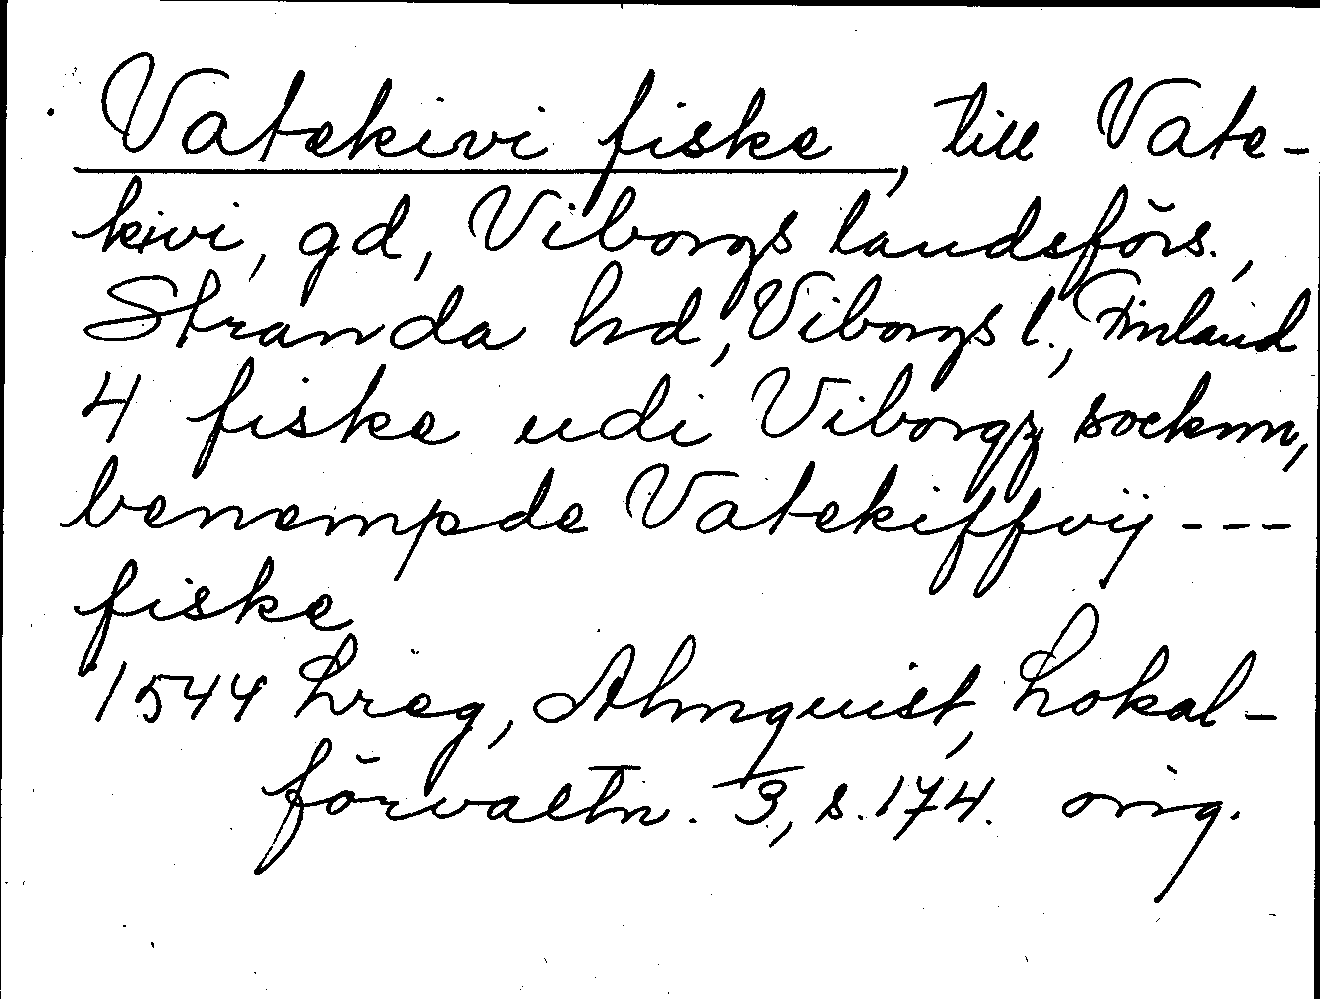 Vatekivi fiske, till Vate-
kivi, gd, Viborgs landsförs.,
Stranda hd, Viborgs l., Finland
4 fiske udi Viborgz socknn,
benempde Vatekiffvij ---
fiske
1544 Lreg, Almquist, Lokal-
förvaltn. 3, s. 174. orig.